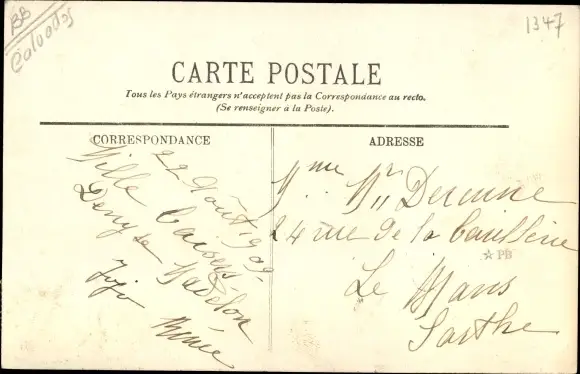 BB
Calvados
1347
CARTE POSTALE
Tous les Pays étrangers n'acceptent pas la Correspondance au recto.
(Se renseigner à la Poste).
CORRESPONDANCE
ADRESSE
22 Août 1909
Mille baisers
Denyse Madelon
Jojo
Mme
24 rue de la
Le Mans
Sarthe
PB